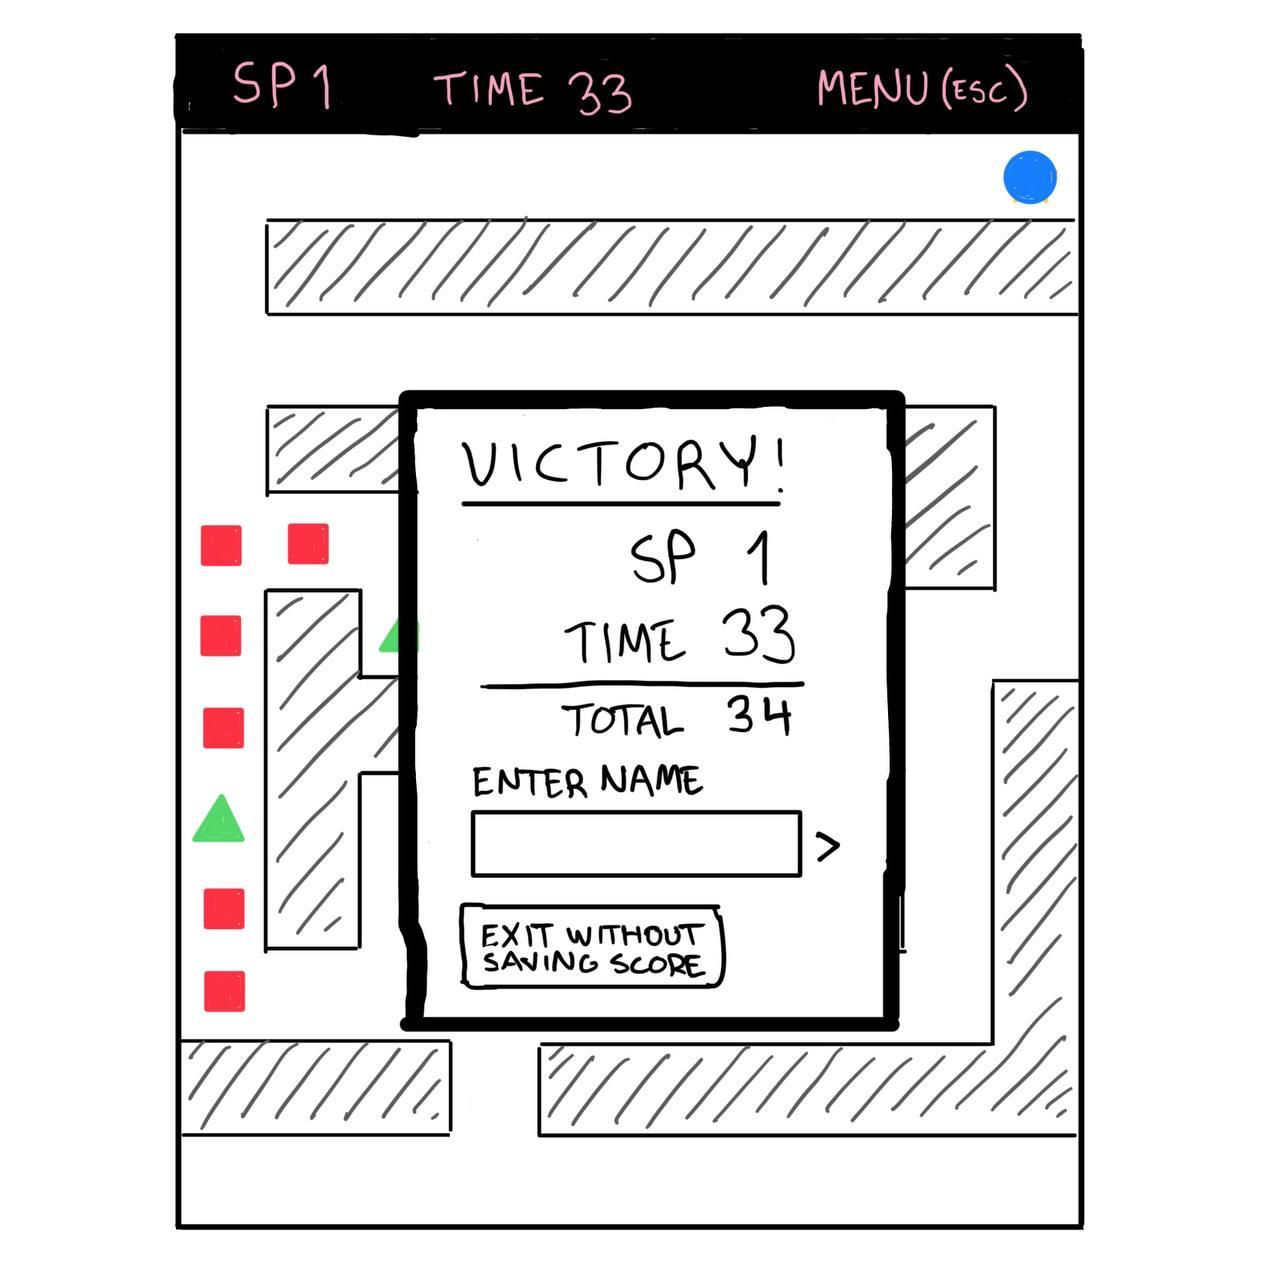 SP 1 TIME 33 MENU (ESC)
VICTORY!
SP 1
TIME 33
TOTAL 34
ENTER NAME
>
EXIT WITHOUT
SAVING SCORE